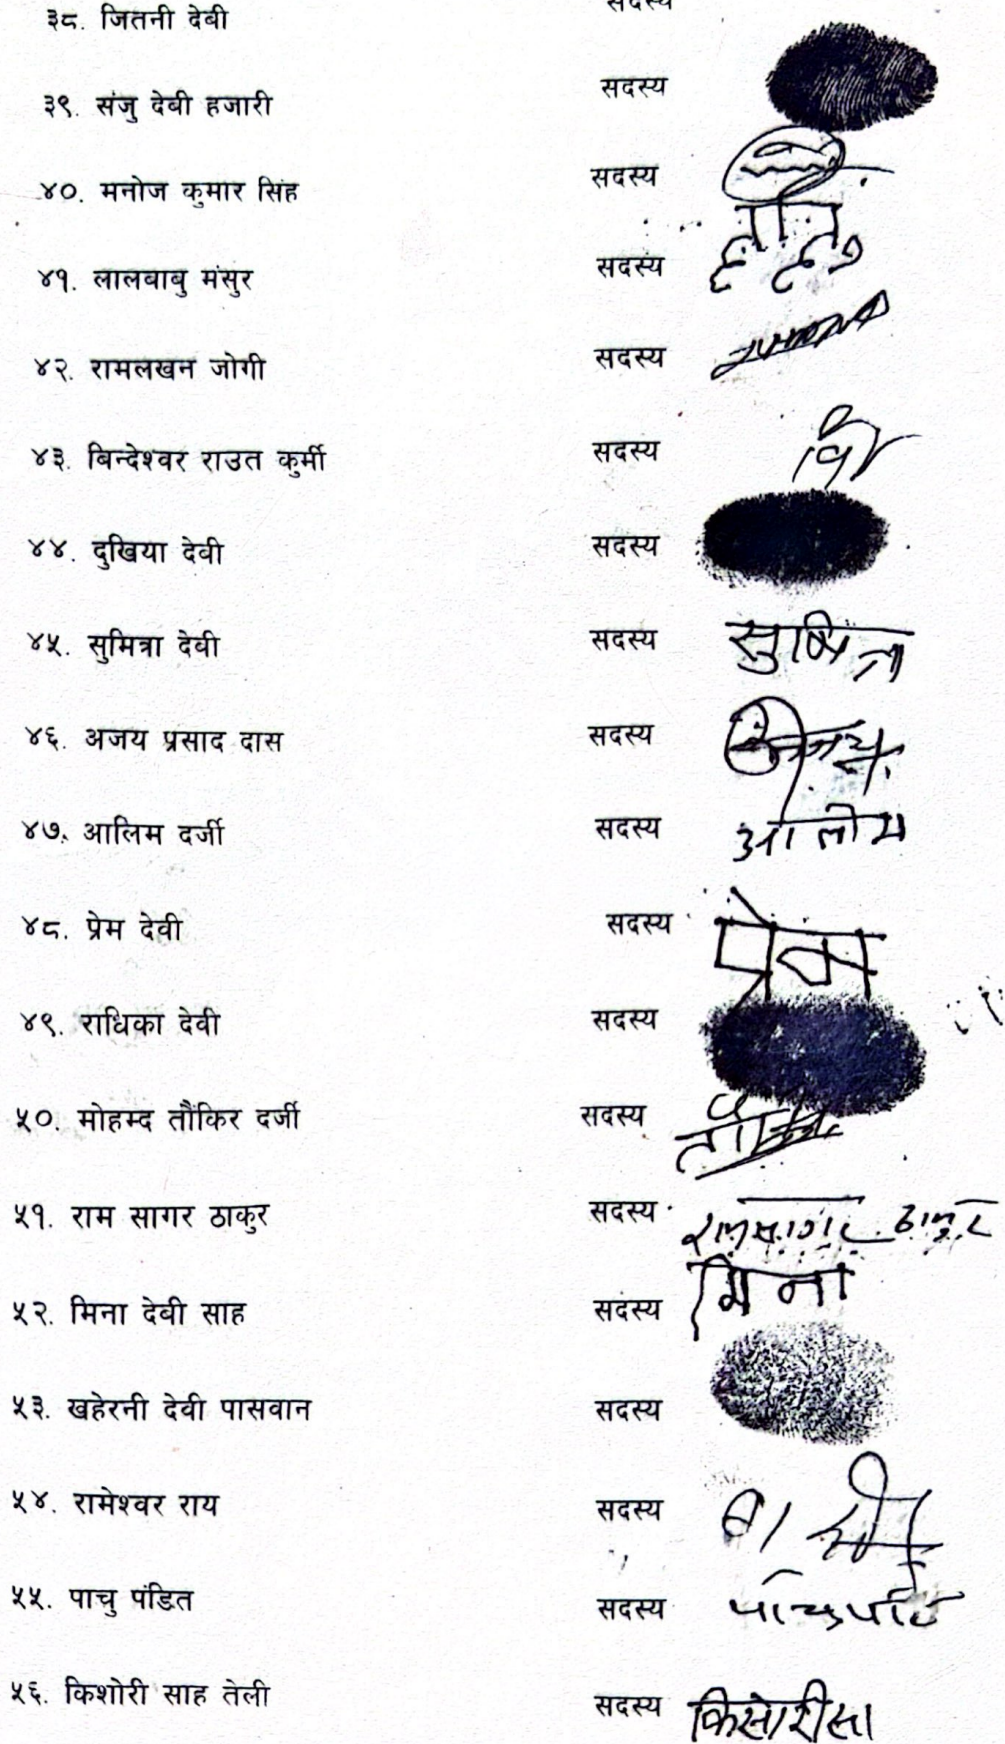 ३८. जितनी देवी सदस्य
३९. संजु देवी हजारी सदस्य
४०. मनोज कुमार सिंह सदस्य
४१. लालबाबु मंसुर सदस्य
४२. रामलखन जोगी सदस्य
४३. बिन्देश्वर राउत कुर्मी सदस्य
४४. दुखिया देवी सदस्य
४५. सुमित्रा देवी सदस्य सुमित्रा
४६. अजय प्रसाद दास सदस्य अजय
४७. आलिम दर्जी सदस्य आलीम
४८. प्रेम देवी सदस्य प्रेम
४९. राधिका देवी सदस्य
५०. मोहम्द तौंकिर दर्जी सदस्य
५१. राम सागर ठाकुर सदस्य रामसागर ठाकुर
५२. मिना देवी साह सदस्य मिना
५३. खहेरनी देवी पासवान सदस्य
५४. रामेश्वर राय सदस्य
५५. पाचु पंडित सदस्य
५६. किशोरी साह तेली सदस्य किसोरीसा